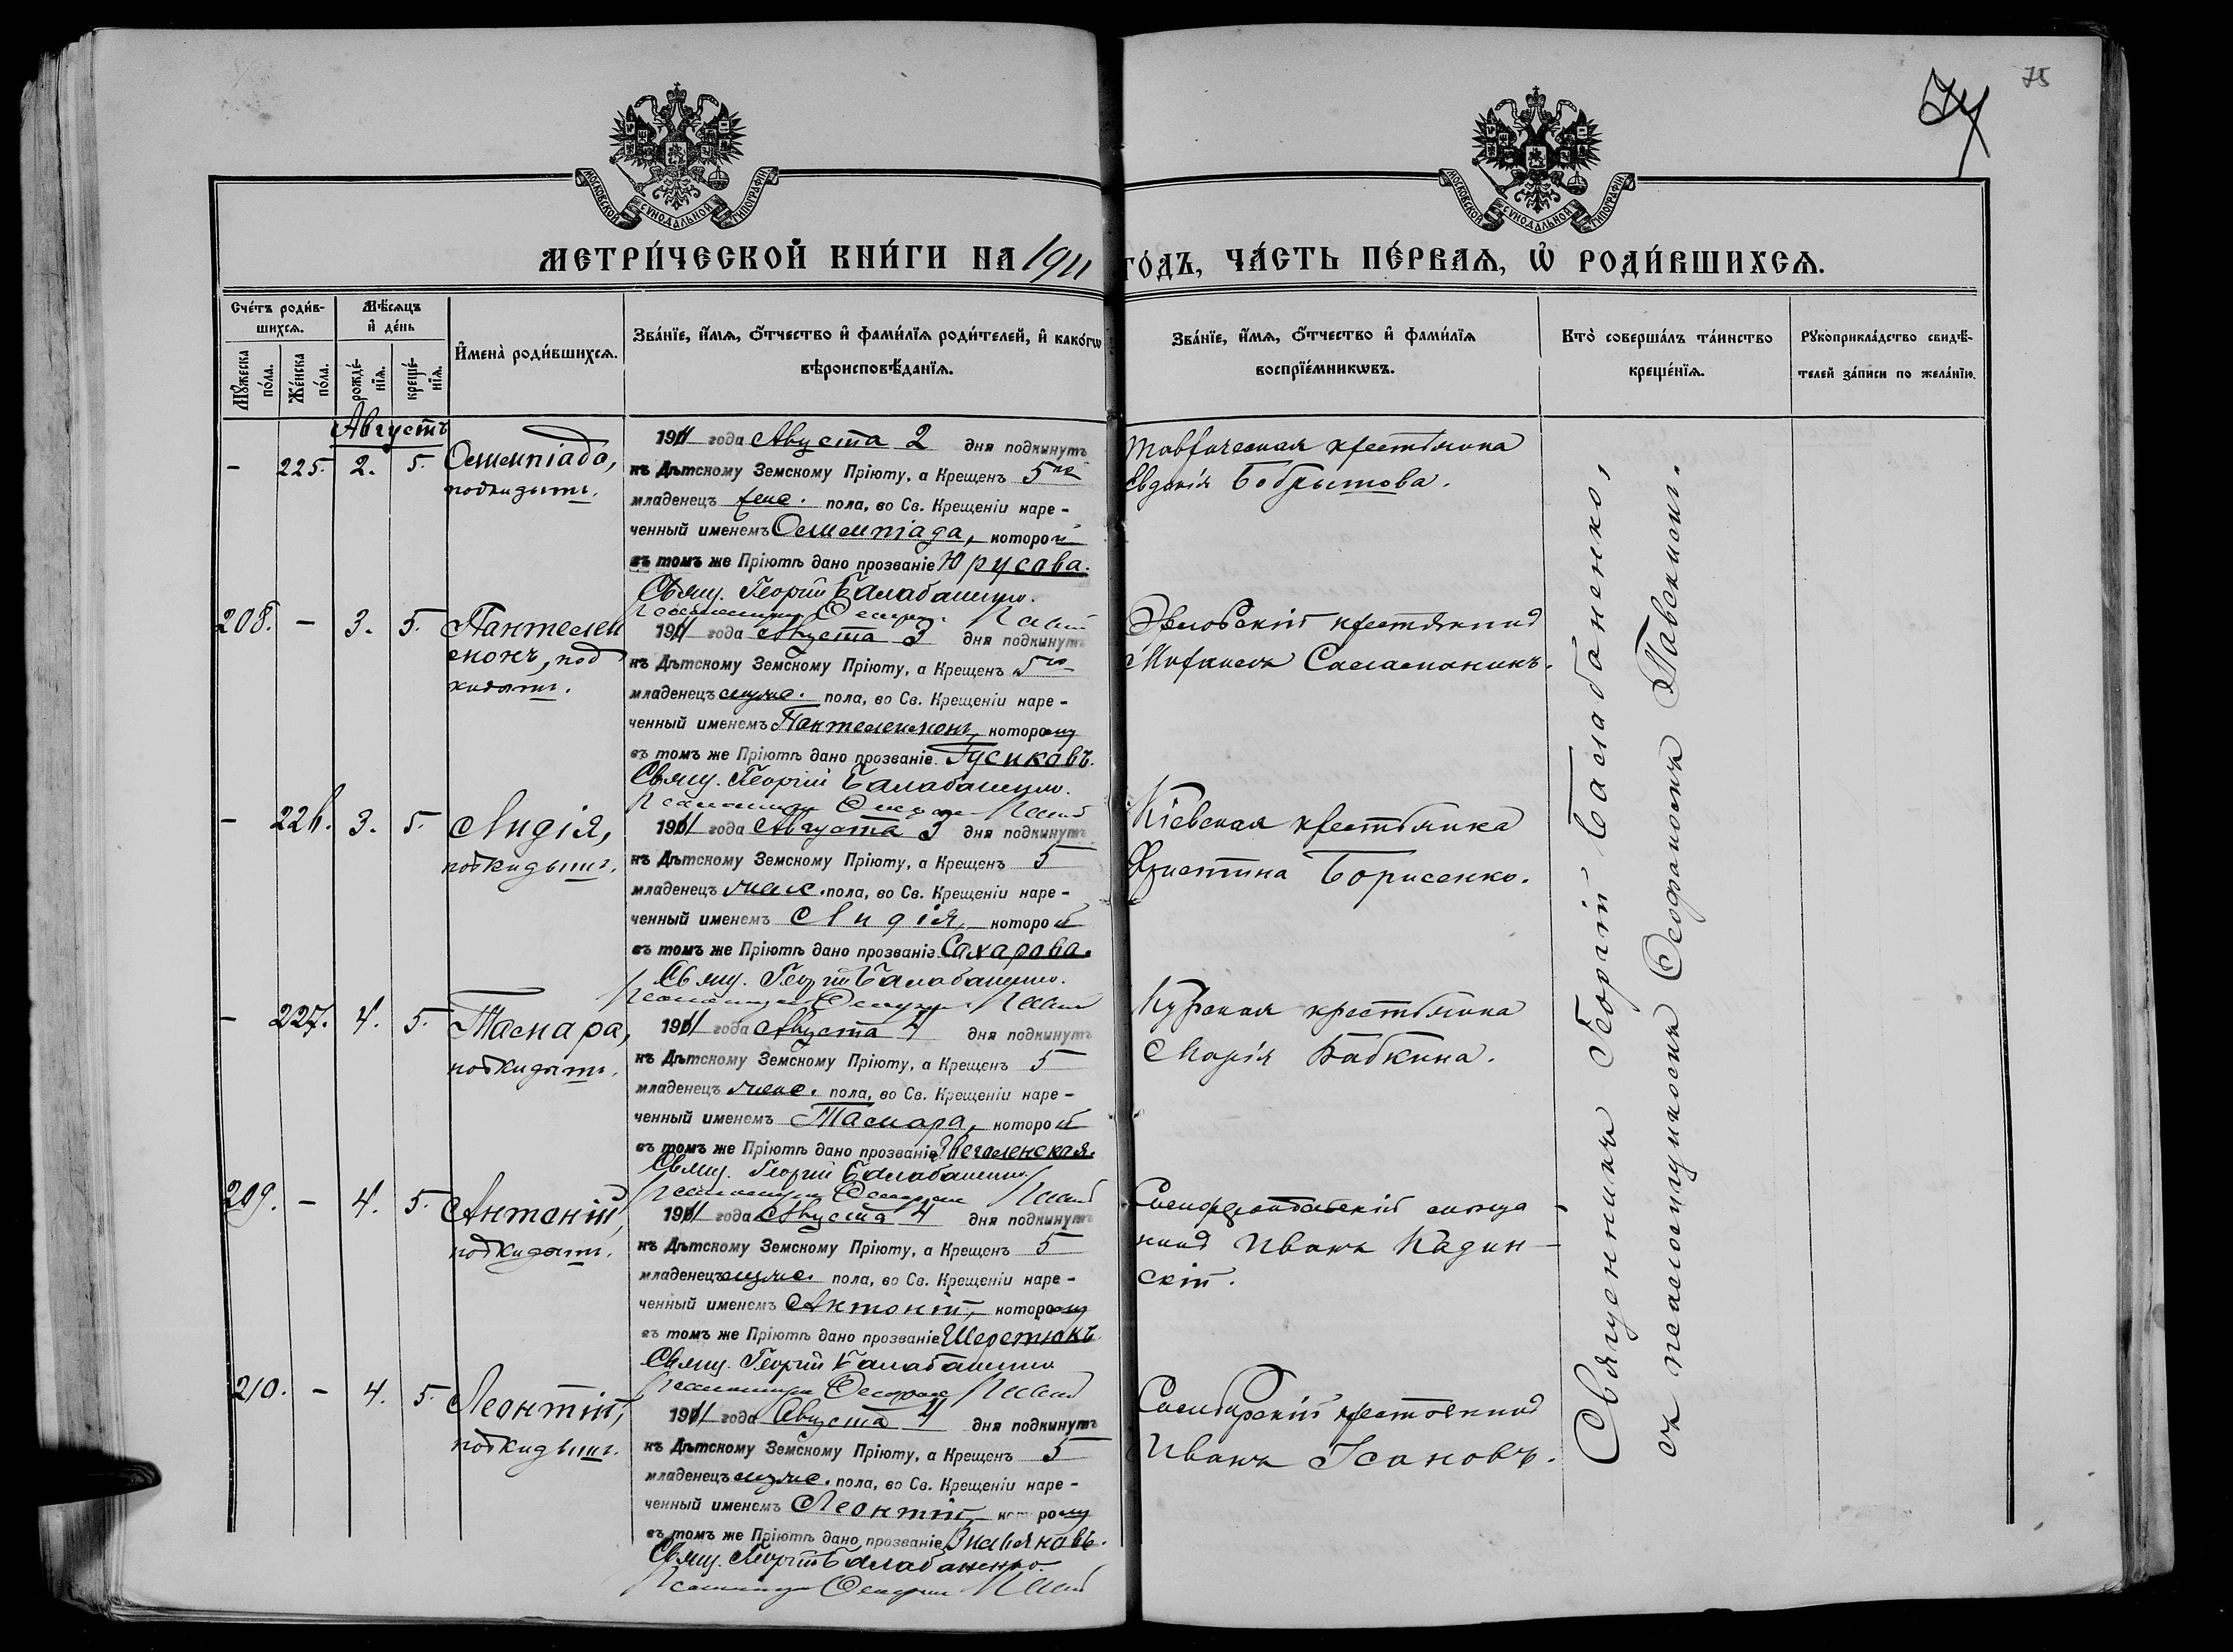 74
75
МОСКОВСКОЙ СУНОДАЛЬНОЙ ТИПОГРАФІИ
МОСКОВСКОЙ СУНОДАЛЬНОЙ ТИПОГРАФІИ
МЕТРИ́ЧЕСКОЙ КНИ́ГИ НА 1911
ГО́ДЪ, ЧА́СТЬ ПЕ́РВАЯ, Ѡ҆ РОДИ́ВШИХСЯ.
Сче́тъ роди́в-
шихся.
Мꙋжеска по́ла.
Же́нска по́ла.
Мѣ́сяцъ
и҆ де́нь
рожде́-
нїя.
креще́-
нїя.
И҆мена̀ роди́вшихся.
Зва́нїе, и҆́мя, ѻ҆́тчество и҆ фами́лїя роди́телей, и҆ како́гѡ
вѣроисповѣ́данїя.
Зва́нїе, и҆́мя, ѻ҆́тчество и҆ фами́лїя
воспрїе́мникѡвъ.
Кто̀ соверша́лъ та́инство
креще́нїя.
Рꙋкоприкла́дство свидѣ́-
телей за́писи по жела́нїю.
Августъ
- 225. 2. 5. Олимпіада,
подкидышъ.
1911 года Августа 2 дня подкинутъ
къ Дѣтскому Земскому Пріюту, а Крещенъ 5го
младенецъ жен. пола, во Св. Крещеніи наре-
ченный именемъ Олимпіада, которой
въ томъ же Пріютѣ дано прозваніе Юрусова.
Свящ. Георгій Балабаненко.
Таврическая крестьянка
Евдокія Бобрышова.
208. - 3. 5. Пантелеи
монъ, под
кидышъ.
1911 года Августа 3 дня подкинутъ
къ Дѣтскому Земскому Пріюту, а Крещенъ 5го
младенецъ муж. пола, во Св. Крещеніи наре-
ченный именемъ Пантелеимонъ, которому
въ томъ же Пріютѣ дано прозваніе Гусиковъ.
Свящ. Георгій Балабаненко.
Орловскій крестьянинъ
- 226. 3. 5. Лидія,
подкидышъ.
1911 года Августа 3 дня подкинутъ
къ Дѣтскому Земскому Пріюту, а Крещенъ 5
младенецъ жен. пола, во Св. Крещеніи наре-
ченный именемъ Лидія, которой
въ томъ же Пріютѣ дано прозваніе Сахарова.
Свящ. Георгій Балабаненко.
Кіевская крестьянка
Христина Борисенко.
- 227. 4. 5. Тамара,
подкидышъ.
1911 года Августа 4 дня подкинутъ
къ Дѣтскому Земскому Пріюту, а Крещенъ 5
младенецъ жен. пола, во Св. Крещеніи наре-
ченный именемъ Тамара, которой
въ томъ же Пріютѣ дано прозваніе
Свящ. Георгій Балабаненко
Курская крестьянка
Марія Бабкина.
209. - 4. 5. Антоній,
подкидышъ.
1911 года Августа 4 дня подкинутъ
къ Дѣтскому Земскому Пріюту, а Крещенъ 5
младенецъ муж. пола, во Св. Крещеніи наре-
ченный именемъ Антоній, которому
въ томъ же Пріютѣ дано прозваніе Шеретюкъ
Свящ. Георгій Балабаненко
Симферопольскій мѣща
нинъ Иванъ Кадин-
скій.
210. - 4. 5. Леонтій,
подкидышъ.
1911 года Августа 4 дня подкинутъ
къ Дѣтскому Земскому Пріюту, а Крещенъ 5
младенецъ муж. пола, во Св. Крещеніи наре-
ченный именемъ Леонтій, которому
въ томъ же Пріютѣ дано прозваніе
Свящ. Георгій Балабаненко.
Симбирскій крестьянинъ
Иванъ Исановъ.
Священникъ Георгій Балабаненко,
съ псаломщикомъ Феофаномъ Павскимъ.